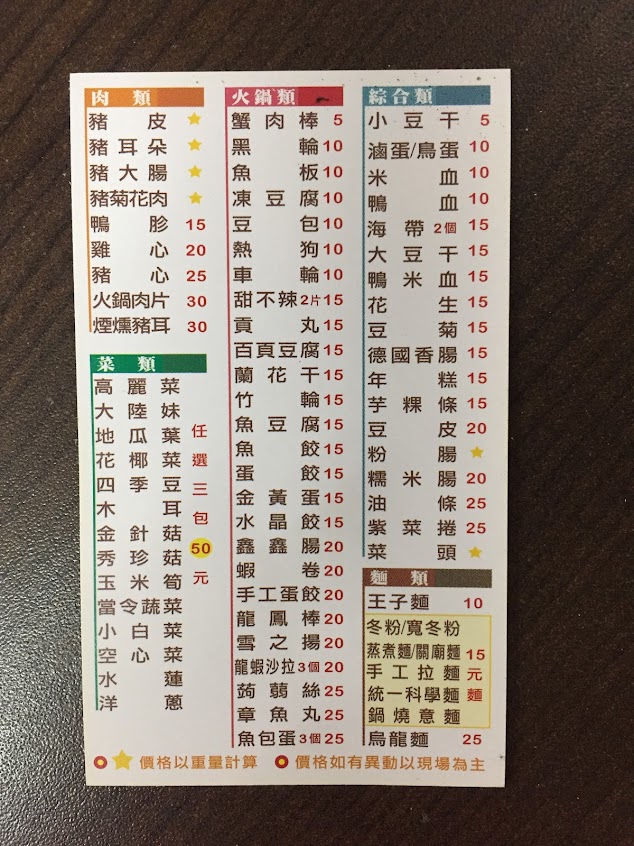 肉類
豬皮★
豬耳朵★
豬大腸★
豬菊花肉★
鴨胗 15
雞心 20
豬心 25
火鍋肉片 30
煙燻豬耳 30
菜類
高麗菜
大陸妹
地瓜葉
花椰菜
四季豆
木耳
金針菇
秀珍菇
玉米筍
當令蔬菜
小白菜
空心菜
水蓮
洋蔥
任選三包50元
火鍋類
蟹肉棒 5
黑輪 10
魚板 10
凍豆腐 10
豆包 10
熱狗 10
車輪 10
甜不辣 2片 15
貢丸 15
百頁豆腐 15
蘭花干 15
竹輪 15
魚豆腐 15
魚餃 15
蛋餃 15
金黃蛋 15
水晶餃 15
鑫鑫腸 20
蝦卷 20
手工蛋餃 20
龍鳳棒 20
雪之揚 20
龍蝦沙拉 3個 20
蒟蒻絲 25
章魚丸 25
魚包蛋 3個 25
綜合類
小豆干 5
滷蛋/鳥蛋 10
米血 10
鴨血 10
海帶 2個 15
大豆干 15
鴨米血 15
花生 15
豆菊 15
德國香腸 15
年糕 15
芋粿條 15
豆皮 20
粉腸★
糯米腸 20
油條 25
紫菜捲 25
菜頭★
麵類
王子麵 10
冬粉/寬冬粉
蒸煮麵/關廟麵
手工拉麵
統一科學麵
鍋燒意麵
15元麵
烏龍麵 25
★價格以重量計算 價格如有異動以現場為主